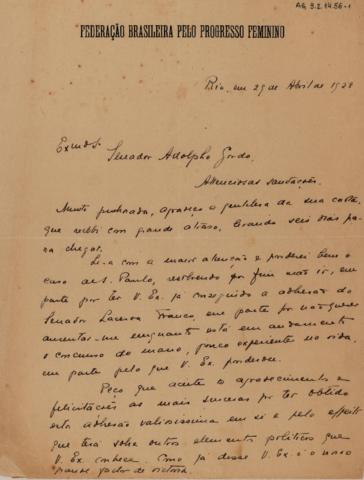 AG 3.2.14.56-1
FEDERAÇÃO BRASILEIRA PELO PROGRESSO FEMININO
Rio, em 29 de Abril de 1928
Exmo Sr.
Senador Adolpho Gordo.
Attenciosas saudações.
Muito penhorada, agradeço a gentileza da sua carta,
que recebi com grande atraso, levando seis dias pa-
ra chegar.
Li-a com a maior attenção e ponderei bem o
caso de S. Paulo, resolvendo por fim não ir, em
parte por ter V. Ex. já conseguido a adhesão do
Senador Lacerda Franco, em parte por não querer
ausentar-me emquanto está em andamento
o concurso do mano, pouco experiente na vida,
em parte pelo que V. Ex. ponderou.
Peço que aceite os agradecimentos e
felicitações as mais sinceras por ter obtido
esta adhesão valiosissima em si e pelo effeito
que terá sobre outros elementos politicos que
V. Ex. conhece. Como já disse V. Ex. é o nosso
grande factor de victoria.